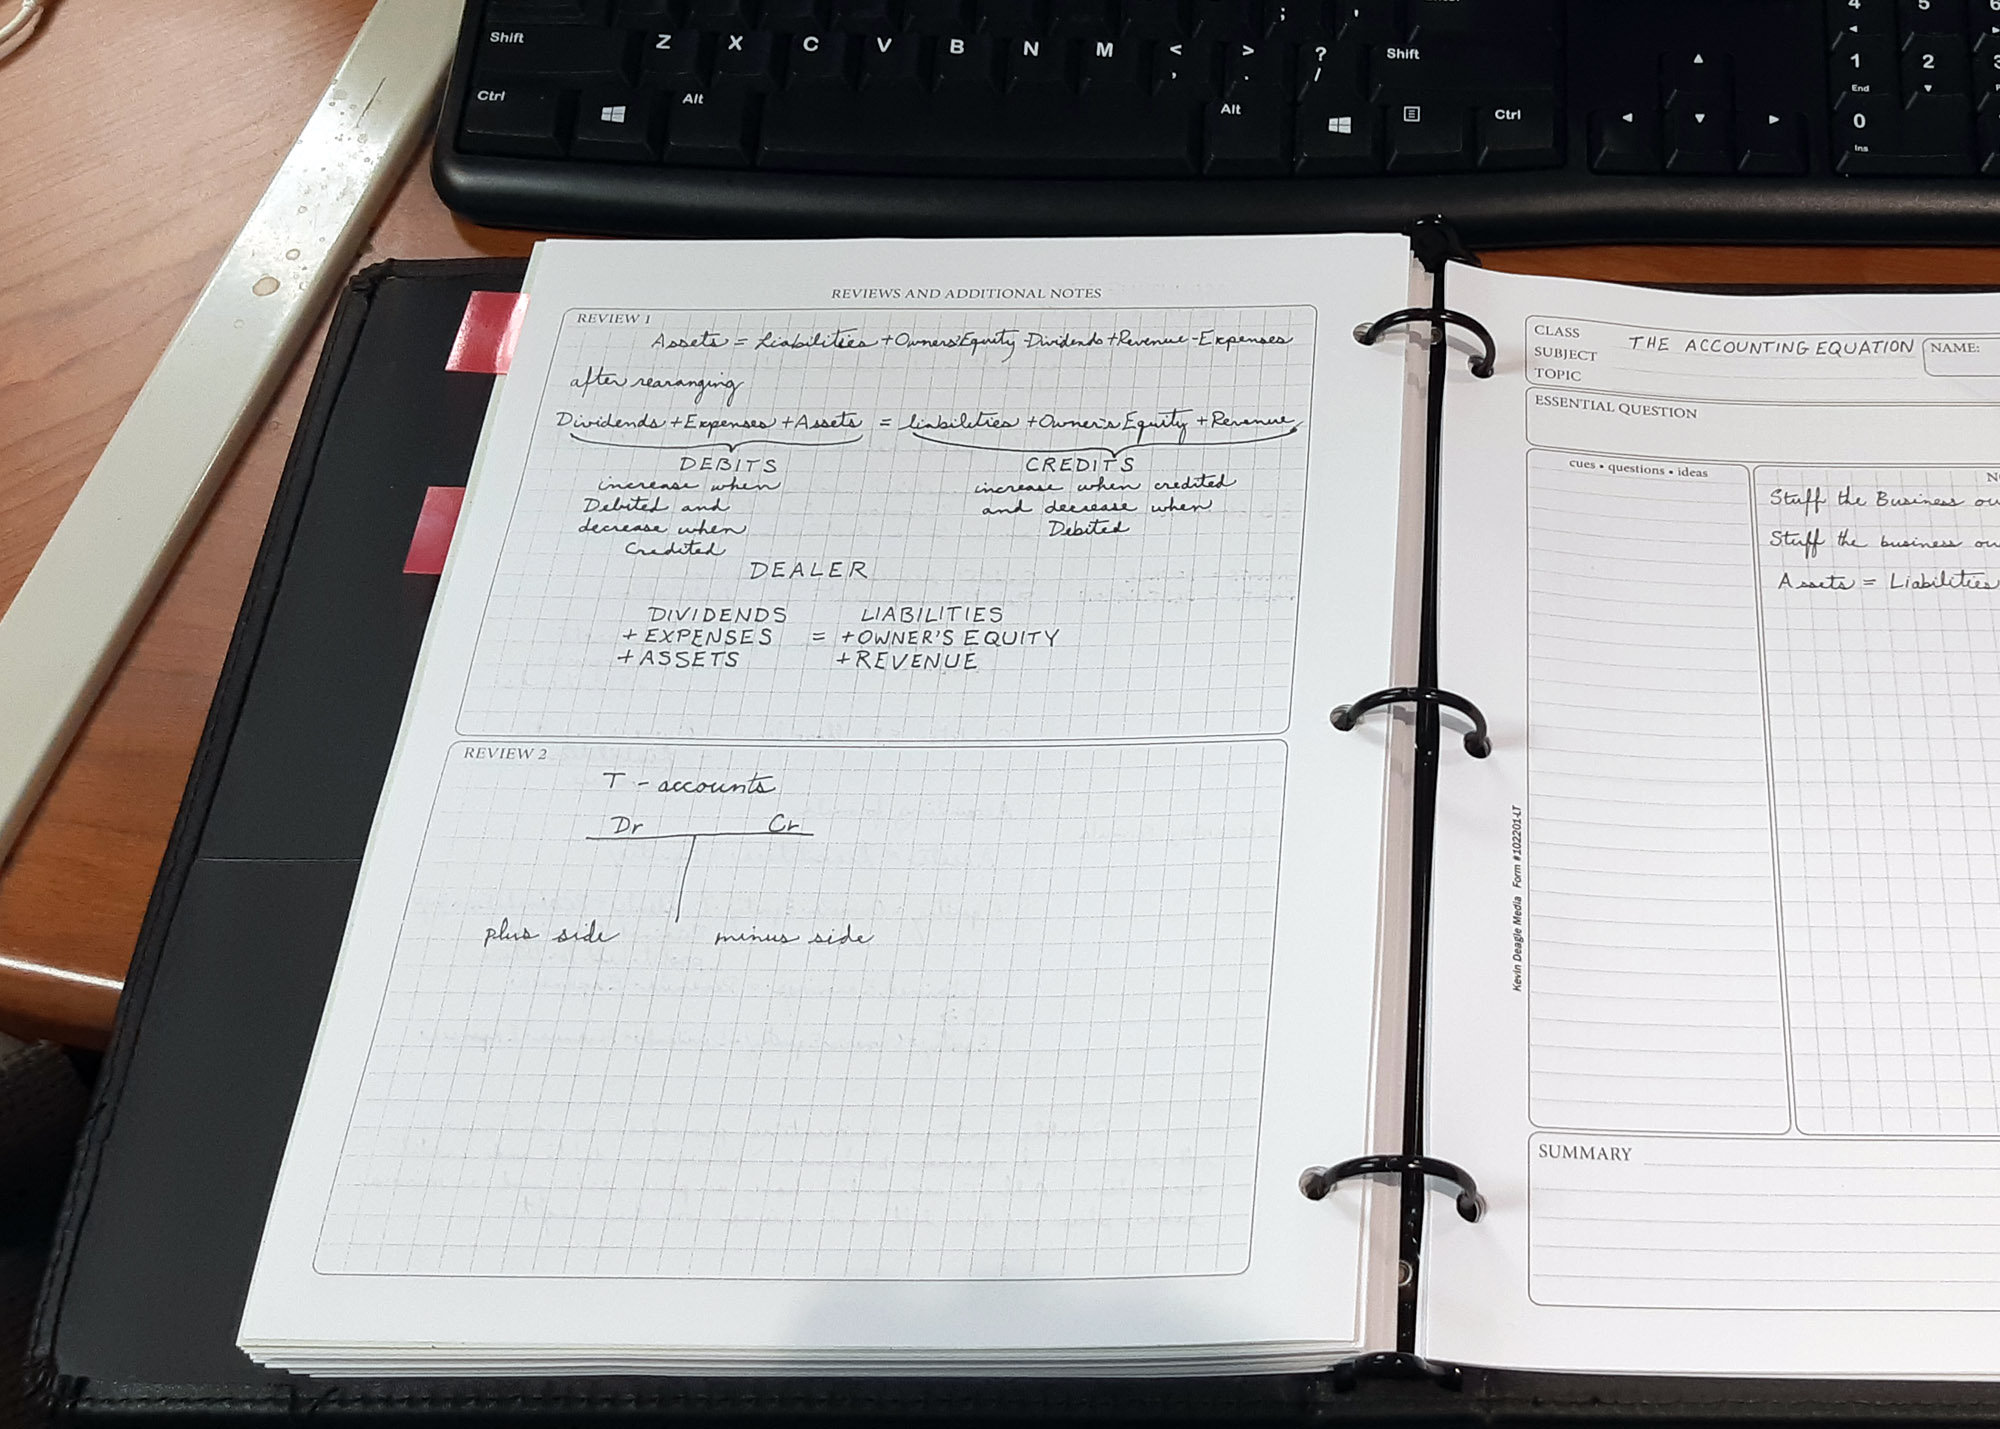 Shift Z X C V B N M < , > . ? / Shift
; '
Ctrl Alt Alt Ctrl
4 5 6
1 2 3
End
0
Ins
REVIEWS AND ADDITIONAL NOTES
REVIEW 1
Assets = Liabilities + Owners' Equity - Dividends + Revenue - Expenses
after rearanging
Dividends + Expenses + Assets = liabilities + Owner's Equity + Revenue
DEBITS
increase when
Debited and
decrease when
Credited
CREDITS
increase when credited
and decrease when
Debited
DEALER
DIVIDENDS LIABILITIES
+ EXPENSES = + OWNER'S EQUITY
+ ASSETS + REVENUE
REVIEW 2
T - accounts
Dr Cr
plus side minus side
CLASS
SUBJECT
TOPIC
THE ACCOUNTING EQUATION
NAME:
ESSENTIAL QUESTION
cues • questions • ideas
Stuff the Business
Stuff the business
Assets = Liabilities
SUMMARY
Kevin Deagle Media Form #102201-LT